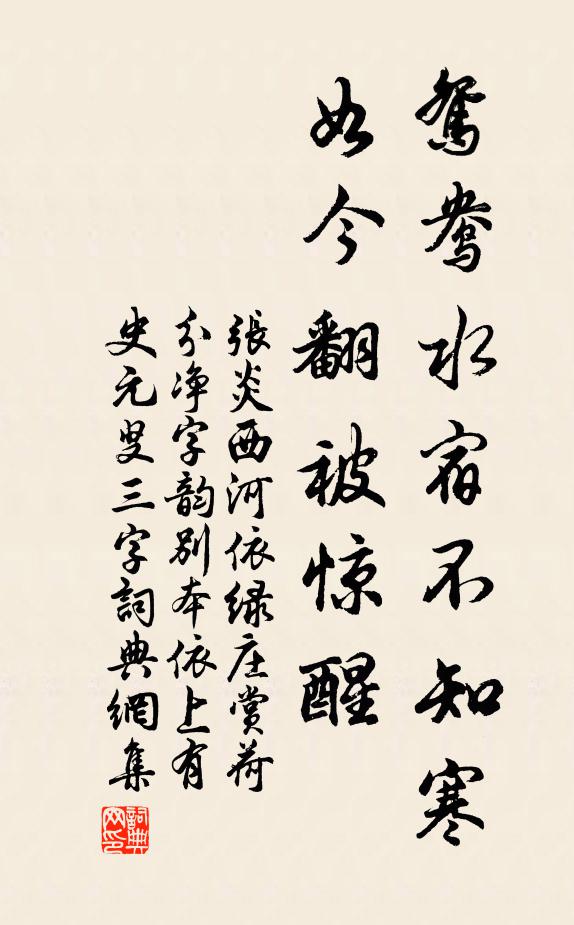 鸳鸯水宿不知寒
如今翻被惊醒
張炎西河依緑庄賞荷
分净字韵别本依上有
史元叟三字詞典網集
詞典
网印